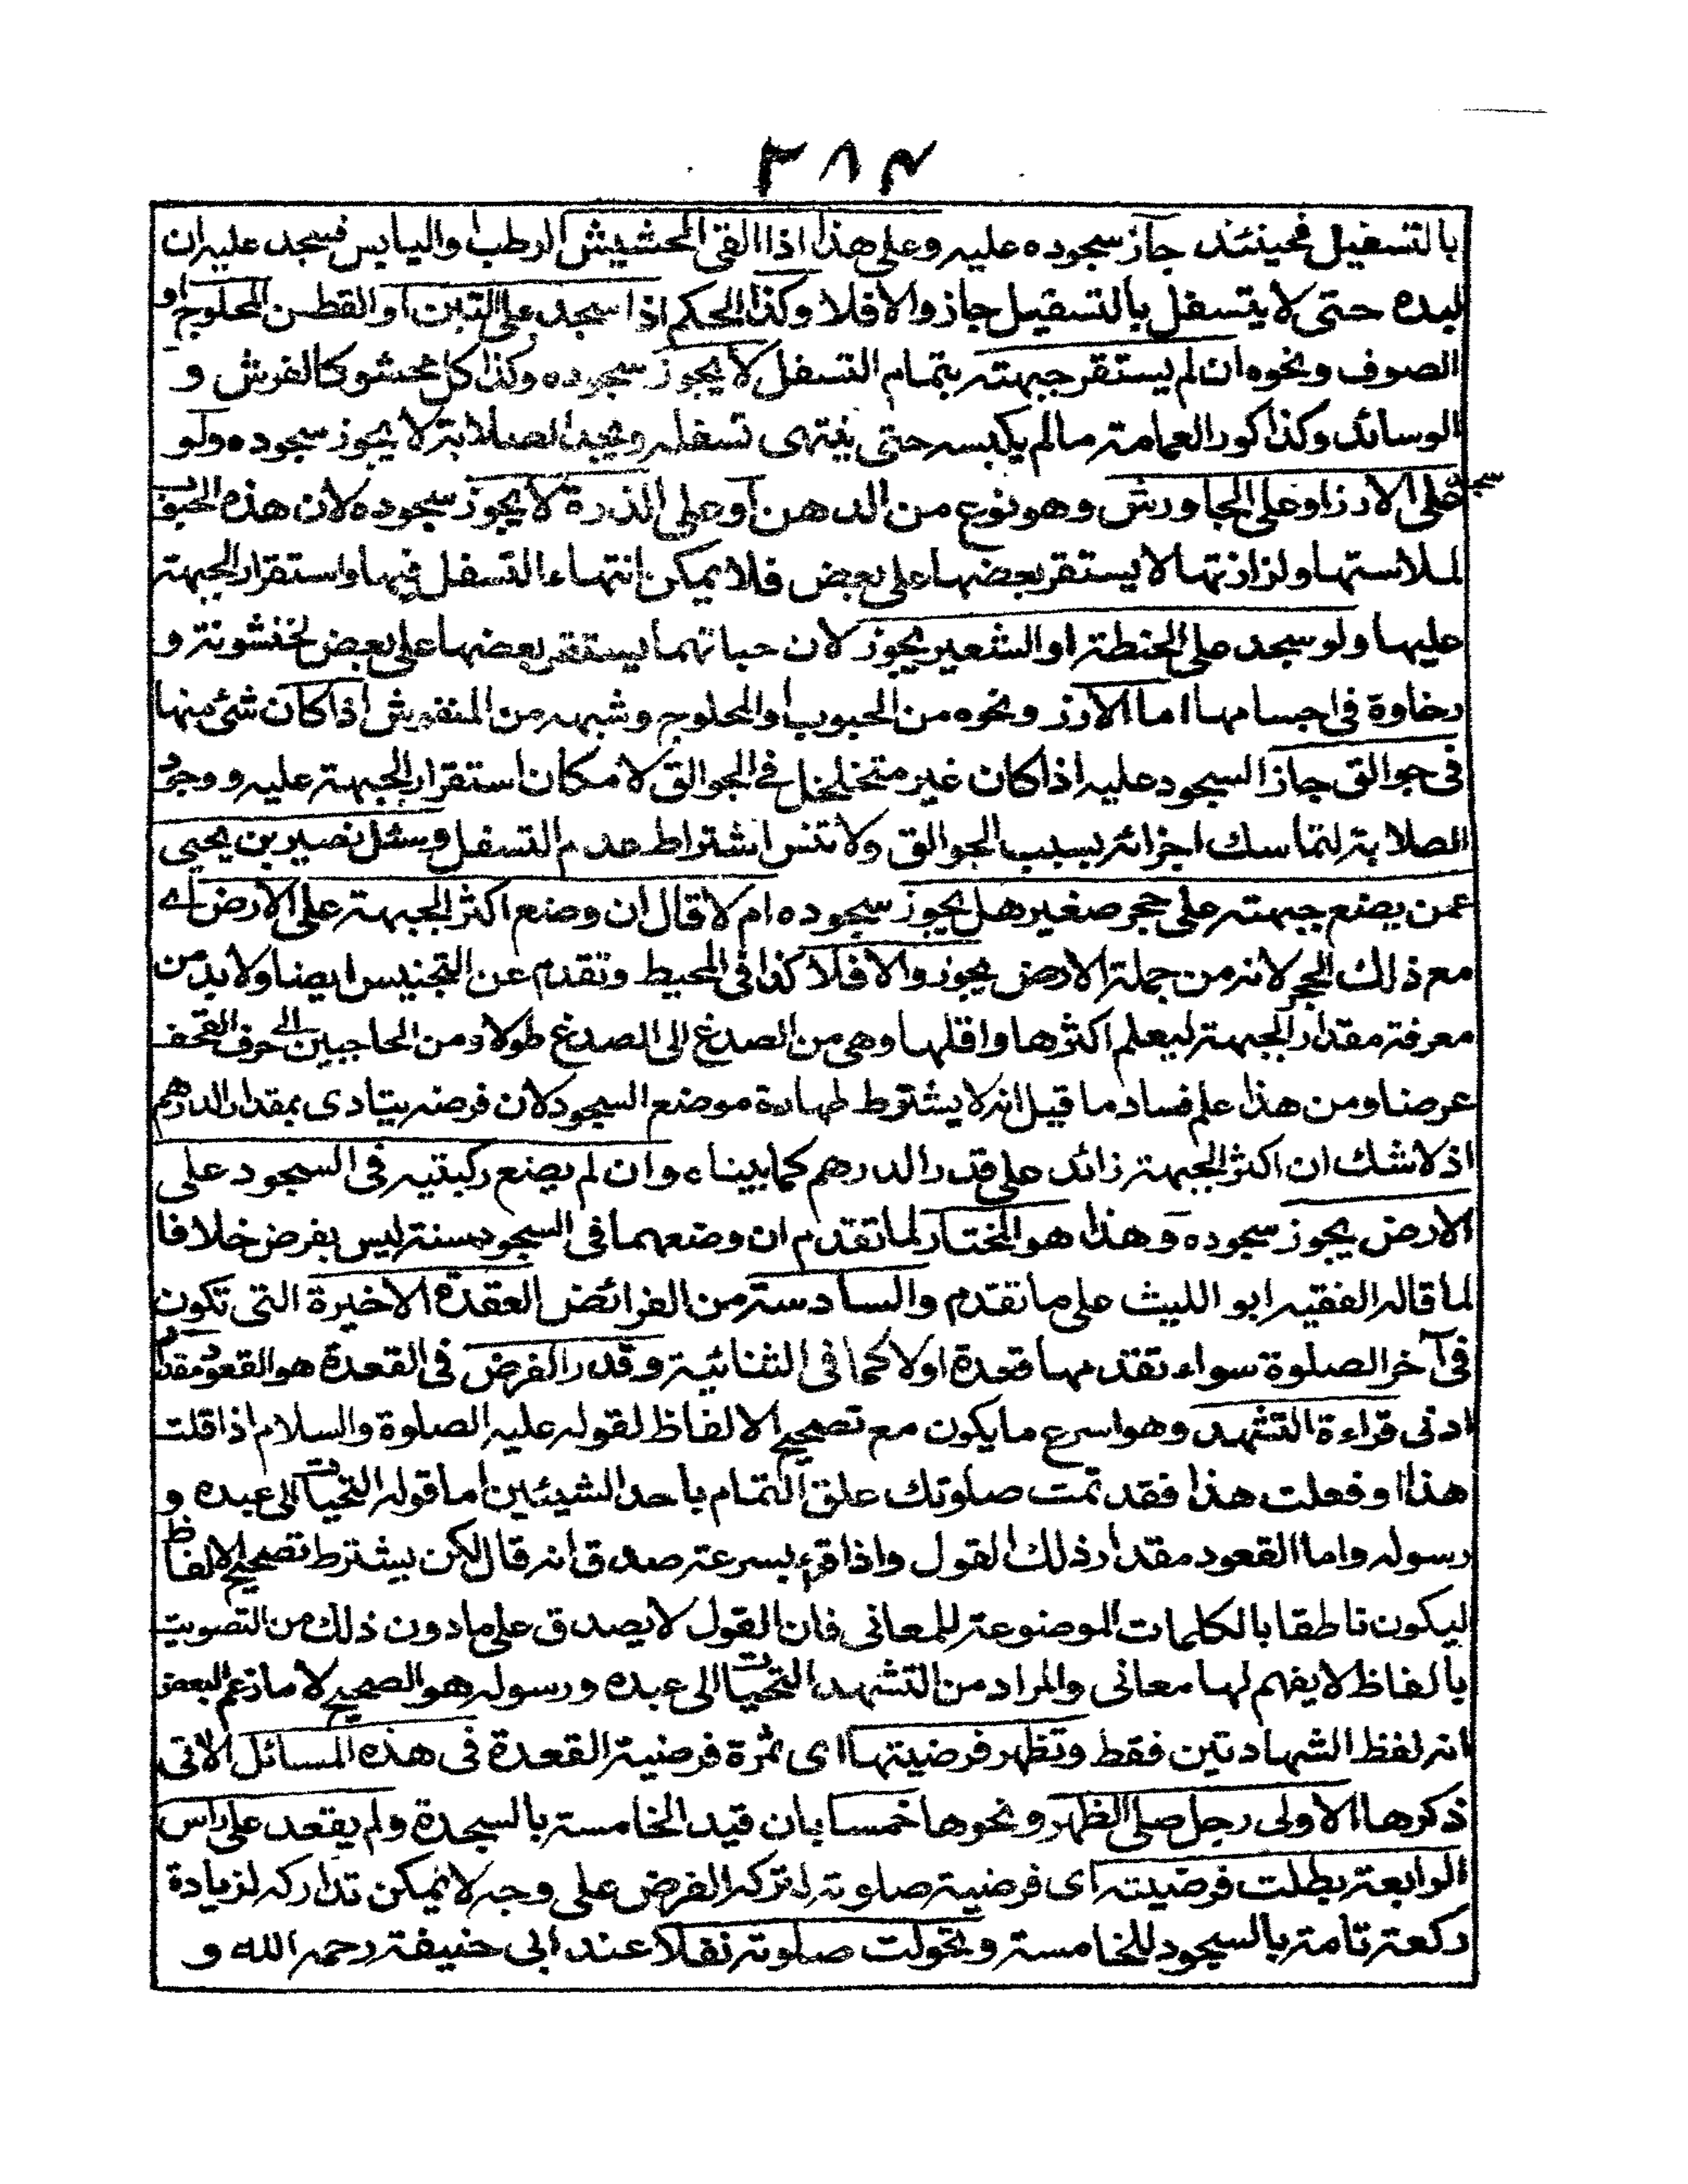 ٢٨٤
بالتسفيل فحينئذ جاز سجوده عليه وعلى هذا اذا القى الحشيش الرطب او اليابس فسجد عليه ان
لبده حتى لا يتسفل بالتسفيل جاز والا فلا وكذا الحكم اذا سجد على التبن او القطن المحلوج او
الصوف ونحوه ان لم يستقر جبهته بتمام التسفل لا يجوز سجوده وكذا كل محشو كالفرش و
الوسائد وكذا كور العمامة ما لم يكبسه حتى ينتهى تسفله ويجد الصلابة لا يجوز سجوده ولو
سجد على الارز او على الجاورش وهو نوع من الدهن او على الذرة لا يجوز سجوده لان هذه الحبوب
لملاستها ولزازتها لا يستقر بعضها على بعض فلا يمكن انتهاء التسفل فيها واستقرار الجبهة
عليها ولو سجد على الحنطة او الشعير يجوز لان حباتهما يستقر بعضها على بعض لخشونة و
رخاوة فى اجسامها اما الارز ونحوه من الحبوب او المحلوج وشبهه من المنفوش اذا كان شئ منها
فى جوالق جاز السجود عليه اذا كان غير متخلخل فى الجوالق لامكان استقرار الجبهة عليه ووجود
الصلابة لتماسك اجزائه بسبب الجوالق ولا تنس اشتراط عدم التسفل وسئل نصير بن يحيى
عمن يضع جبهته على حجر صغير هل يجوز سجوده ام لا قال ان وضع اكثر الجبهة على الارض اى
مع ذلك الحجر لانه من جملة الارض يجوز والا فلا كذا فى المحيط وتقدم عن التجنيس ايضا ولا بد من
معرفة مقدار الجبهة ليعلم اكثرها واقلها وهى من الصدغ الى الصدغ طولا ومن الحاجبين الى حرف القحف
عرضا ومن هذا علم فساد ما قيل انه لا يشترط طهارة موضع السجود لان فرضه يتادى بمقدار الدرهم
اذ لا شك ان اكثر الجبهة زائد على قدر الدرهم كما بيناه وان لم يضع ركبتيه فى السجود على
الارض يجوز سجوده وهذا هو المختار لما تقدم ان وضعهما فى السجود سنة ليس بفرض خلافا
لما قاله الفقيه ابو الليث على ما تقدم والسادسة من الفرائض العقدة الاخيرة التى تكون
فى آخر الصلوة سواء تقدمها قعدة اولا كما فى الثنائية وقدر الفرض فى القعدة هو القعود مقدار
ادنى قراءة التشهد وهو اسرع ما يكون مع تصحيح الالفاظ لقوله عليه الصلوة والسلام اذا قلت
هذا او فعلت هذا فقد تمت صلوتك علق التمام باحد الشيئين اما قوله التحيات الى عبده و
رسوله واما القعود مقدار ذلك القول واذا قرء بسرعة صدق انه قال لكن بيشترط تصحيح الالفاظ
ليكون ناطقا بالكلمات الموضوعة للمعانى فان القول لا يصدق على ما دون ذلك من التصويت
بالفاظ لا يفهم لها معانى والمراد من التشهد التحيات الى عبده ورسوله هو الصحيح لا ما زعم البعض
انه لفظ الشهادتين فقط وتظهر فرضيتها اى ثمرة فرضية القعدة فى هذه المسائل الاتى
ذكرها الاولى رجل صلى الظهر ونحوها خمسا بان قيد الخامسة بالسجدة ولم يقعد على راس
الرابعة بطلت فرضيته اى فرضية صلوته لتركه الفرض على وجه لا يمكن تداركه لزيادة
ركعة تامة بالسجود للخامسة وتحولت صلوته نفلا عند ابى حنيفة رحمه الله و